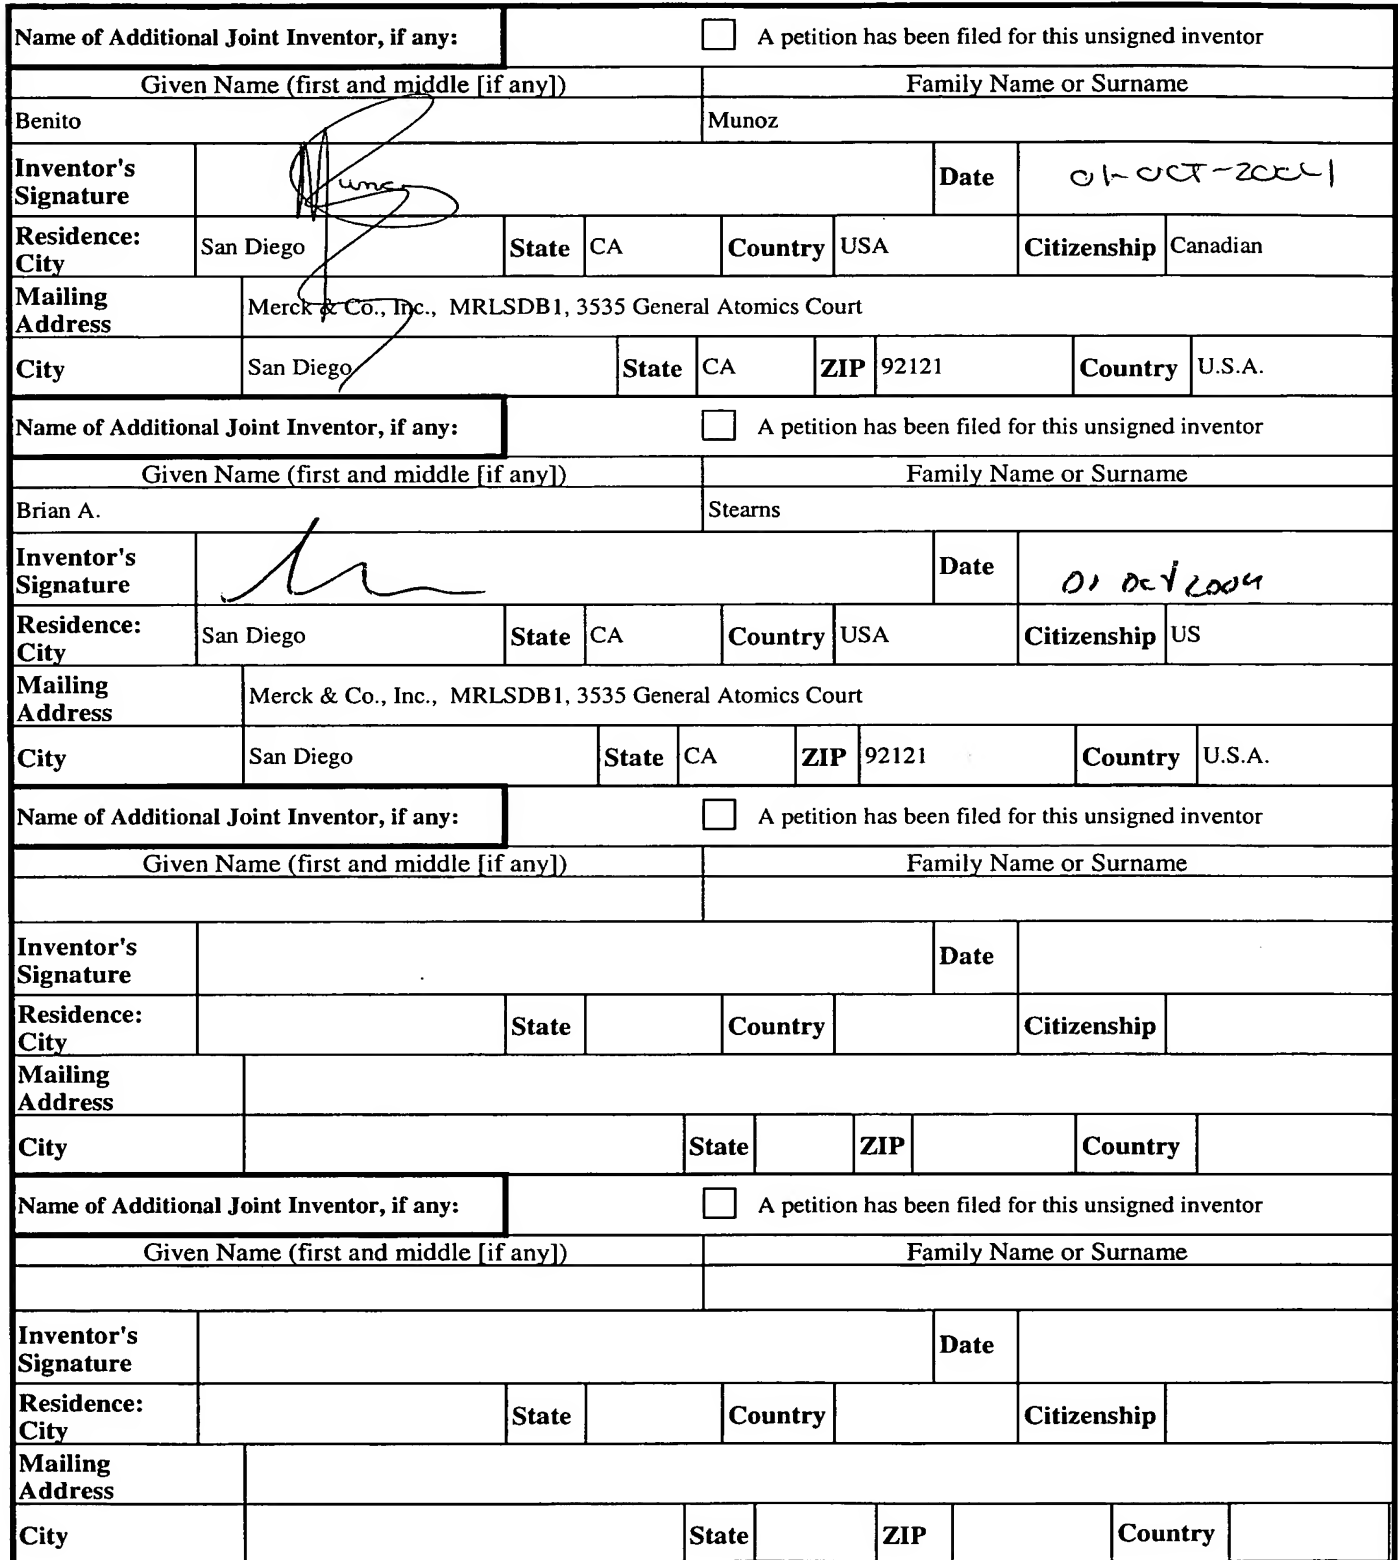 Name of Additional Joint Inventor, if any: A petition has been filed for this unsigned inventor
Given Name (first and middle [if any]) Family Name or Surname
Benito Munoz
Inventor's Signature Munoz Date 01-OCT-2004
Residence: City San Diego State CA Country USA Citizenship Canadian
Mailing Address Merck & Co., Inc., MRLSDB1, 3535 General Atomics Court
City San Diego State CA ZIP 92121 Country U.S.A.
Name of Additional Joint Inventor, if any: A petition has been filed for this unsigned inventor
Given Name (first and middle [if any]) Family Name or Surname
Brian A. Stearns
Inventor's Signature Date 01 Oct 2004
Residence: City San Diego State CA Country USA Citizenship US
Mailing Address Merck & Co., Inc., MRLSDB1, 3535 General Atomics Court
City San Diego State CA ZIP 92121 Country U.S.A.
Name of Additional Joint Inventor, if any: A petition has been filed for this unsigned inventor
Given Name (first and middle [if any]) Family Name or Surname
Inventor's Signature Date
Residence: City State Country Citizenship
Mailing Address
City State ZIP Country
Name of Additional Joint Inventor, if any: A petition has been filed for this unsigned inventor
Given Name (first and middle [if any]) Family Name or Surname
Inventor's Signature Date
Residence: City State Country Citizenship
Mailing Address
City State ZIP Country